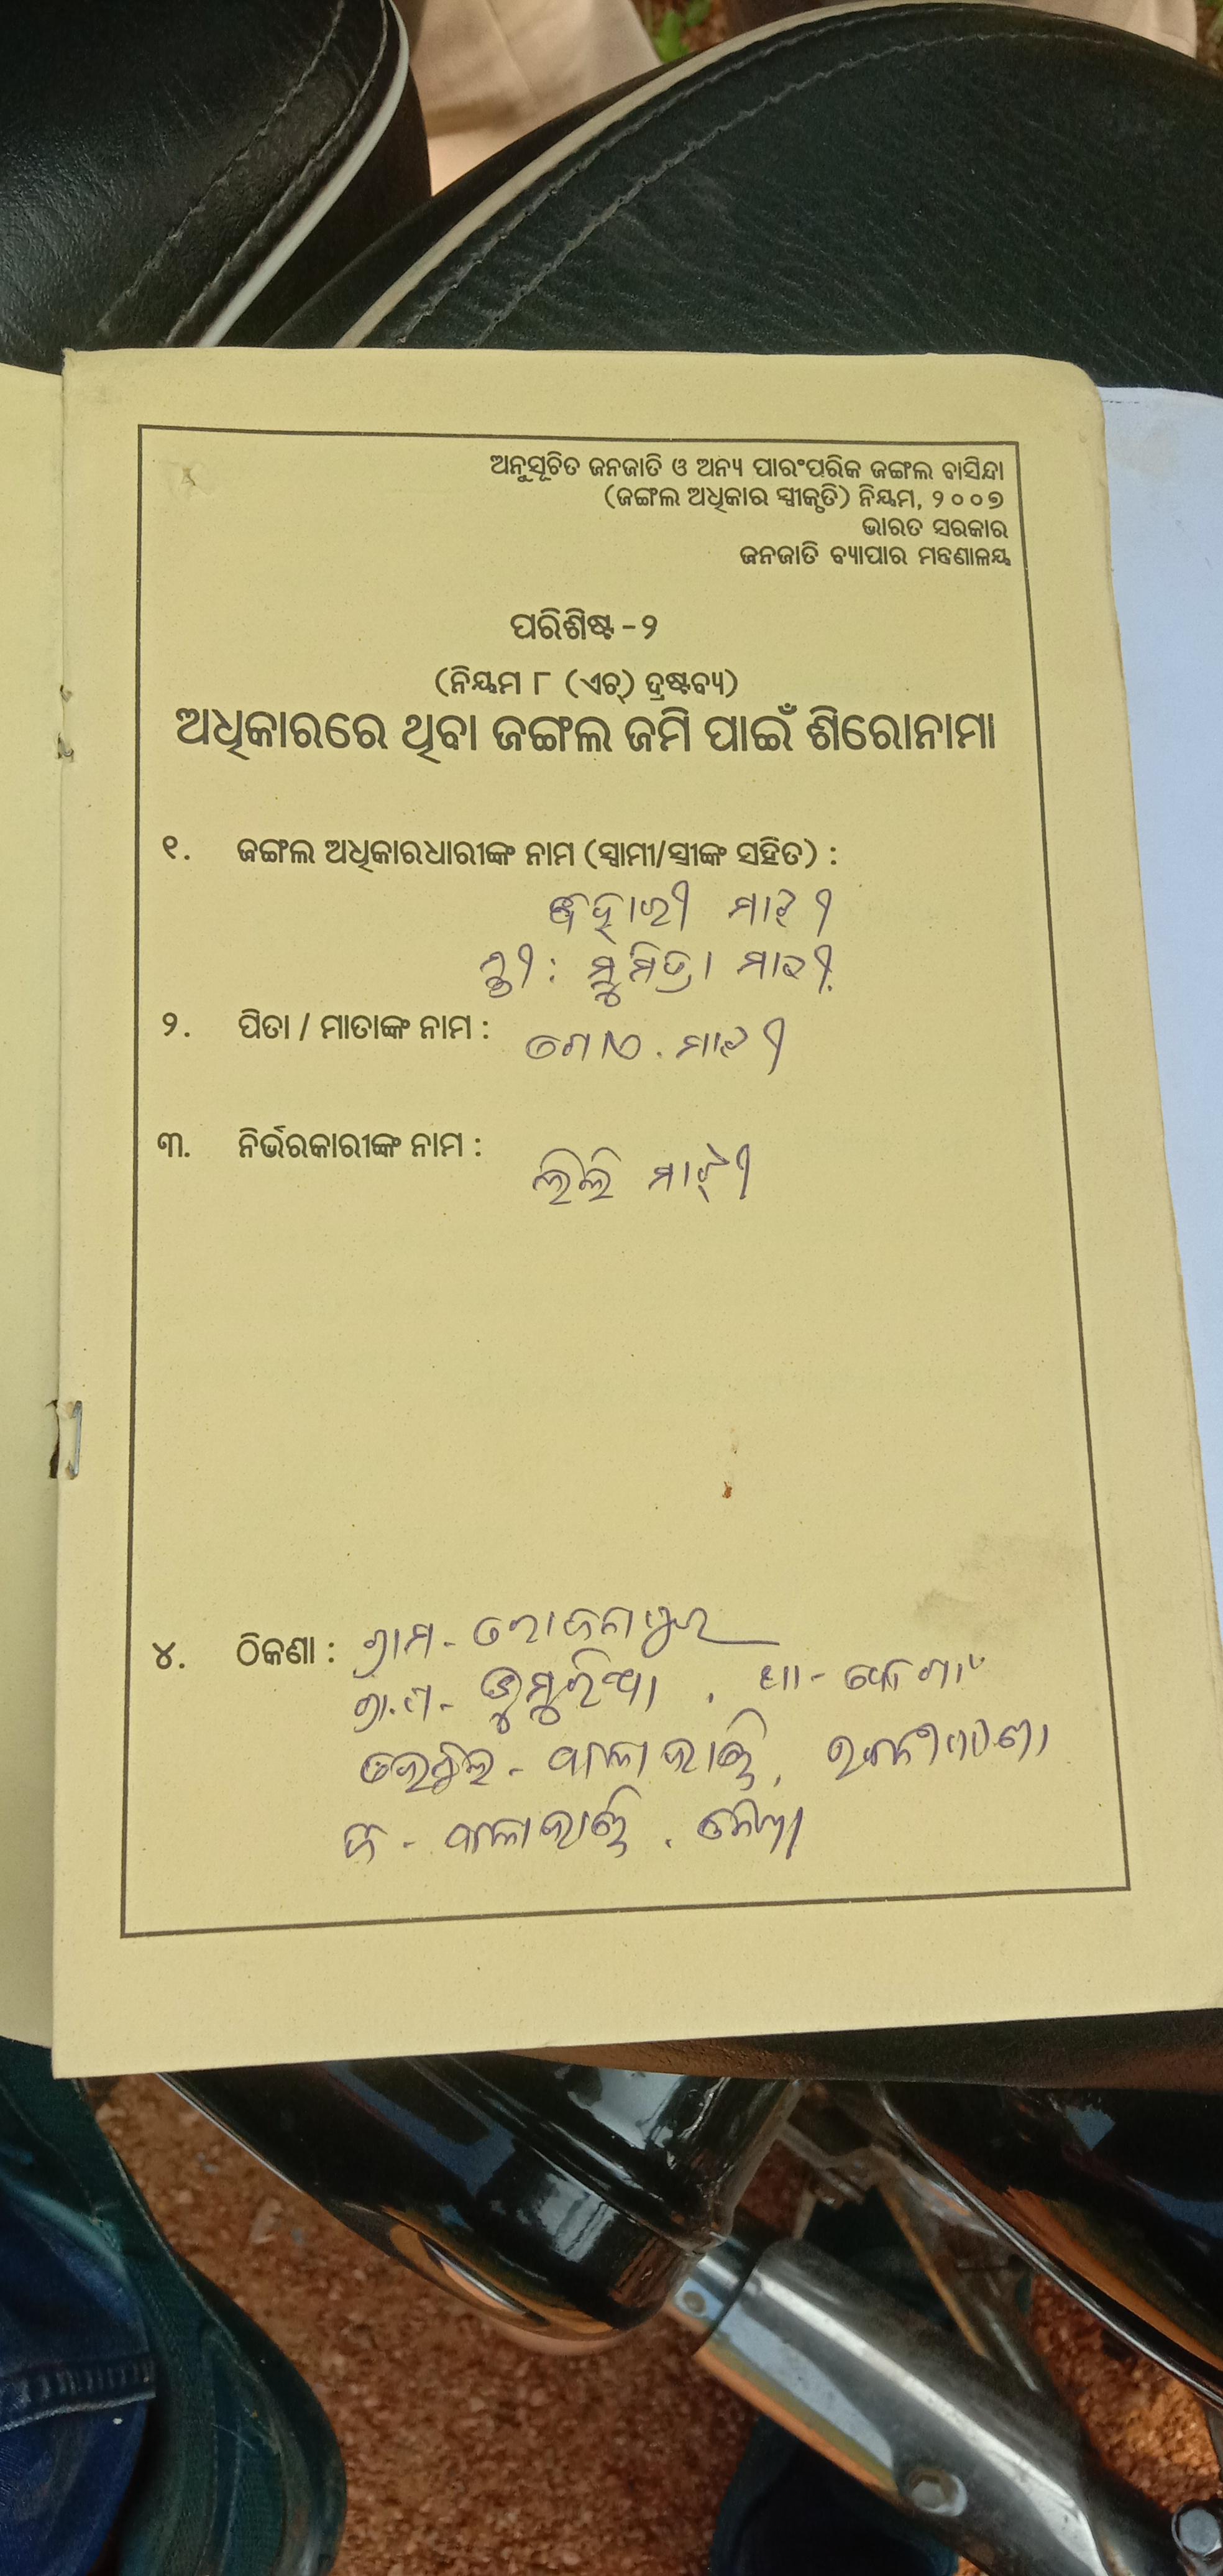 ଅନୁସୂଚିତ ଜନଜାତି ଓ ଅନ୍ୟ ପାରଂପରିକ ଜଙ୍ଗଲ ବାସିନ୍ଦା
(ଜଙ୍ଗଲ ଅଧିକାର ସ୍ୱୀକୃତି) ନିୟମ, ୨୦୦୭
ଭାରତ ସରକାର
ଜନଜାତି ବ୍ୟାପାର ମନ୍ତ୍ରଣାଳୟ
ପରିଶିଷ୍ଟ - ୨
(ନିୟମ ୮ (ଏଚ୍) ଦ୍ରଷ୍ଟବ୍ୟ)
ଅଧିକାରରେ ଥିବା ଜଙ୍ଗଲ ଜମି ପାଇଁ ଶିରୋନାମା
୧. ଜଙ୍ଗଲ ଅଧିକାରଧାରୀଙ୍କ ନାମ (ସ୍ୱାମୀ/ସ୍ତ୍ରୀଙ୍କ ସହିତ) :
ମାଝୀ
ସ୍ତ୍ରୀ : ସୁମିତ୍ରା ମାଝୀ
୨. ପିତା / ମାତାଙ୍କ ନାମ : ମାଝୀ
୩. ନିର୍ଭରକାରୀଙ୍କ ନାମ :
ଲିଲି ମାଝୀ
୪. ଠିକଣା : ଗ୍ରାମ -
ଗ୍ରା.ପ - ଡୁମୁରିଆ . ଥା -
ତହସିଲ - କଳାହାଣ୍ଡି,
ଜି - କଳାହାଣ୍ଡି .